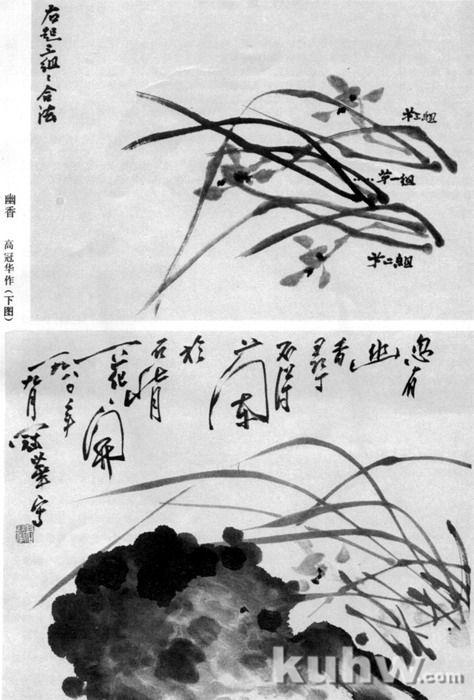 右起三组〻合法
第三组
……第一组
第二组
幽香 高冠华作(下图)
忽有
幽
香寻
不得
兰
於
石背
一花开
一九八〇年
九月
冠华写
kuhw.com